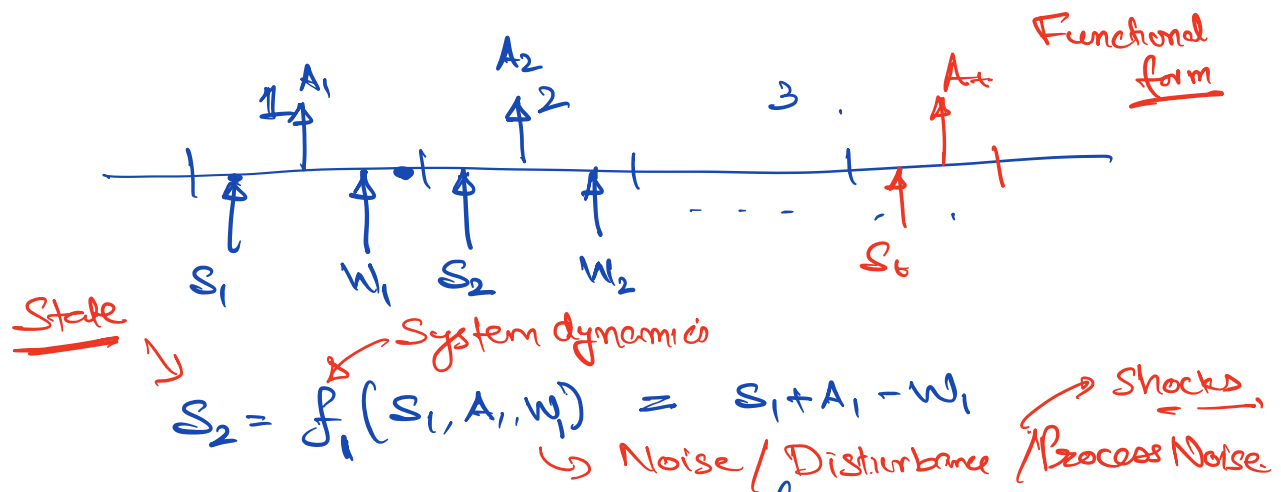 Functional
form
A₁ A₂ A₊
1 2 3
S₁ W₁ S₂ W₂ Sₜ
State
System dynamics
S₂ = f₁(S₁, A₁, W₁) = S₁ + A₁ - W₁
Shocks
Noise / Disturbance / Process Noise